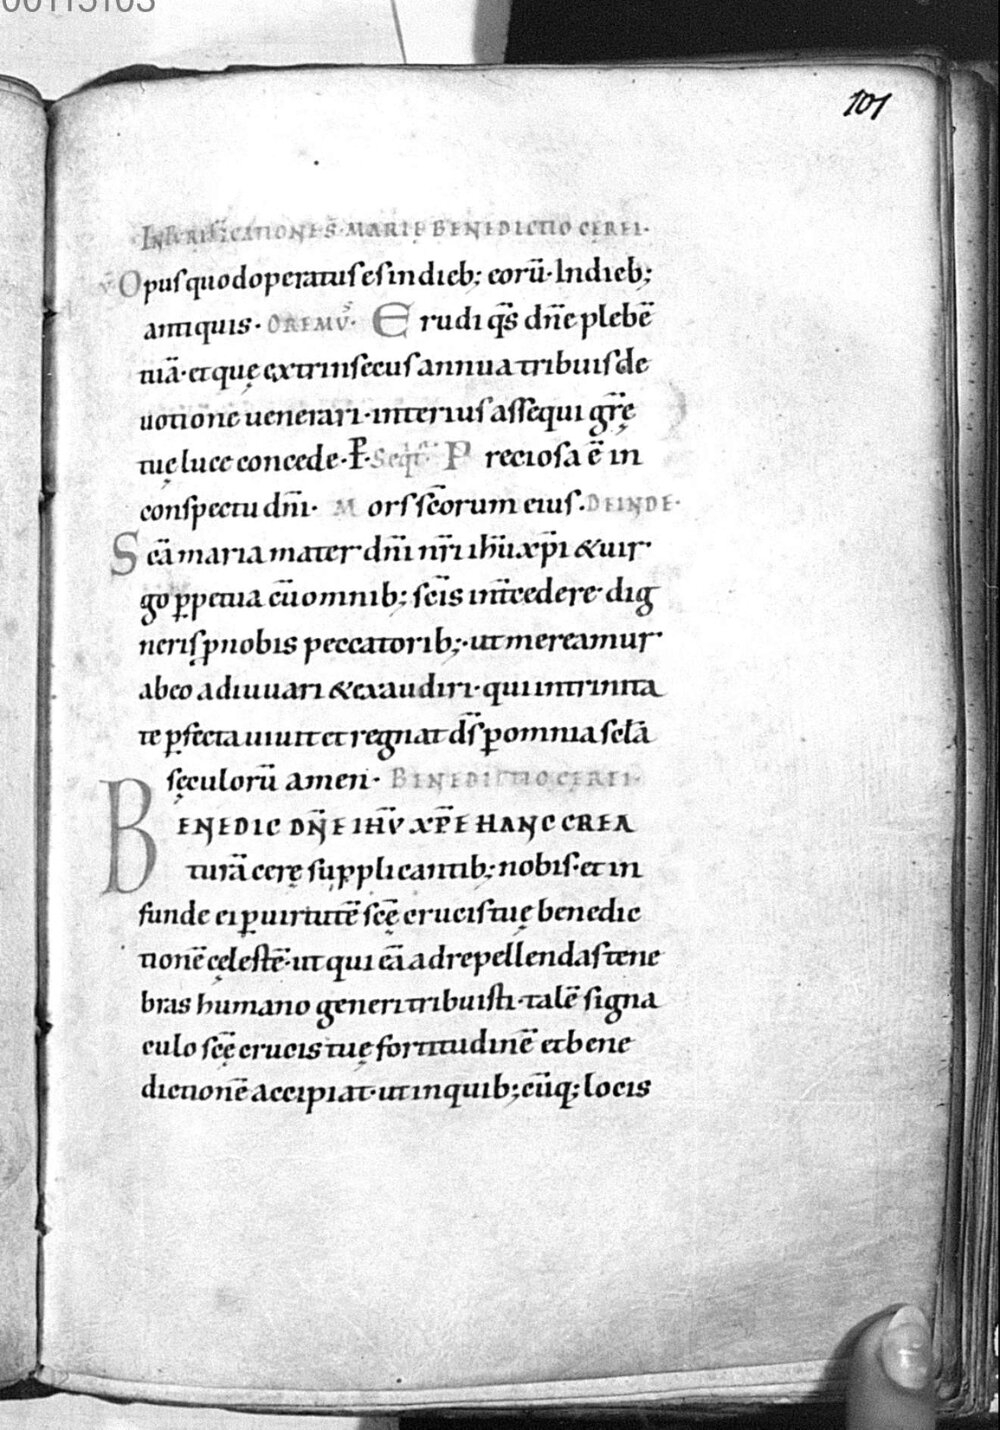 00115103
101
IN PURIFICATIONE S̄ MARIE BENEDICTIO CEREI·
Opus quod operatus es in dieb; eorū· In dieb;
antiquis· OREMVˢ· Erudi q̄s dn̄e plebē
tuā· et quę extrinsecus annua tribuis de
uotione uenerari· interius assequi gr̄ę
tuę luce concede· P̄· Seqt̄· Preciosa ē in
conspectu dn̄i· Mors sc̄orum eius· DEINDE·
Sc̄a maria mater dn̄i nr̄i ihū xp̄i & uir
go ꝑpetua cū omnib; sc̄is int̄cedere dig
neris ꝓ nobis peccatorib;· ut mereamur
ab eo adiuuari & exaudiri· qui in trinita
te ꝑfecta uiuit et regnat ds̄ ꝑ omnia sc̄la
sęculorū amen· BENEDICTIO CEREI·
BENEDIC DN̄E IHV̄ XP̄E HANC CREA
turā cerę supplicantib; nobis· et in
funde ei ꝑ uirtutē sc̄ę crucis tuę benedic
tionē cęlestē· ut qui eā ad repellendas tene
bras humano generi tribuisti· talē signa
culo sc̄ę crucis tuę fortitudinē et bene
dictionē accipiat· ut in quib; cūq; locis